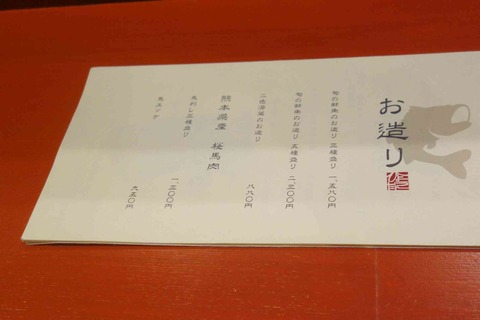 お造り
旬の鮮魚のお造り 三種盛り 一、五八〇円
旬の鮮魚のお造り 五種盛り 二、三〇〇円
二色湯葉のお造り 八八〇円
熊本県産 桜馬肉
馬刺し三種盛り 一、三〇〇円
馬ユッケ 九五〇円